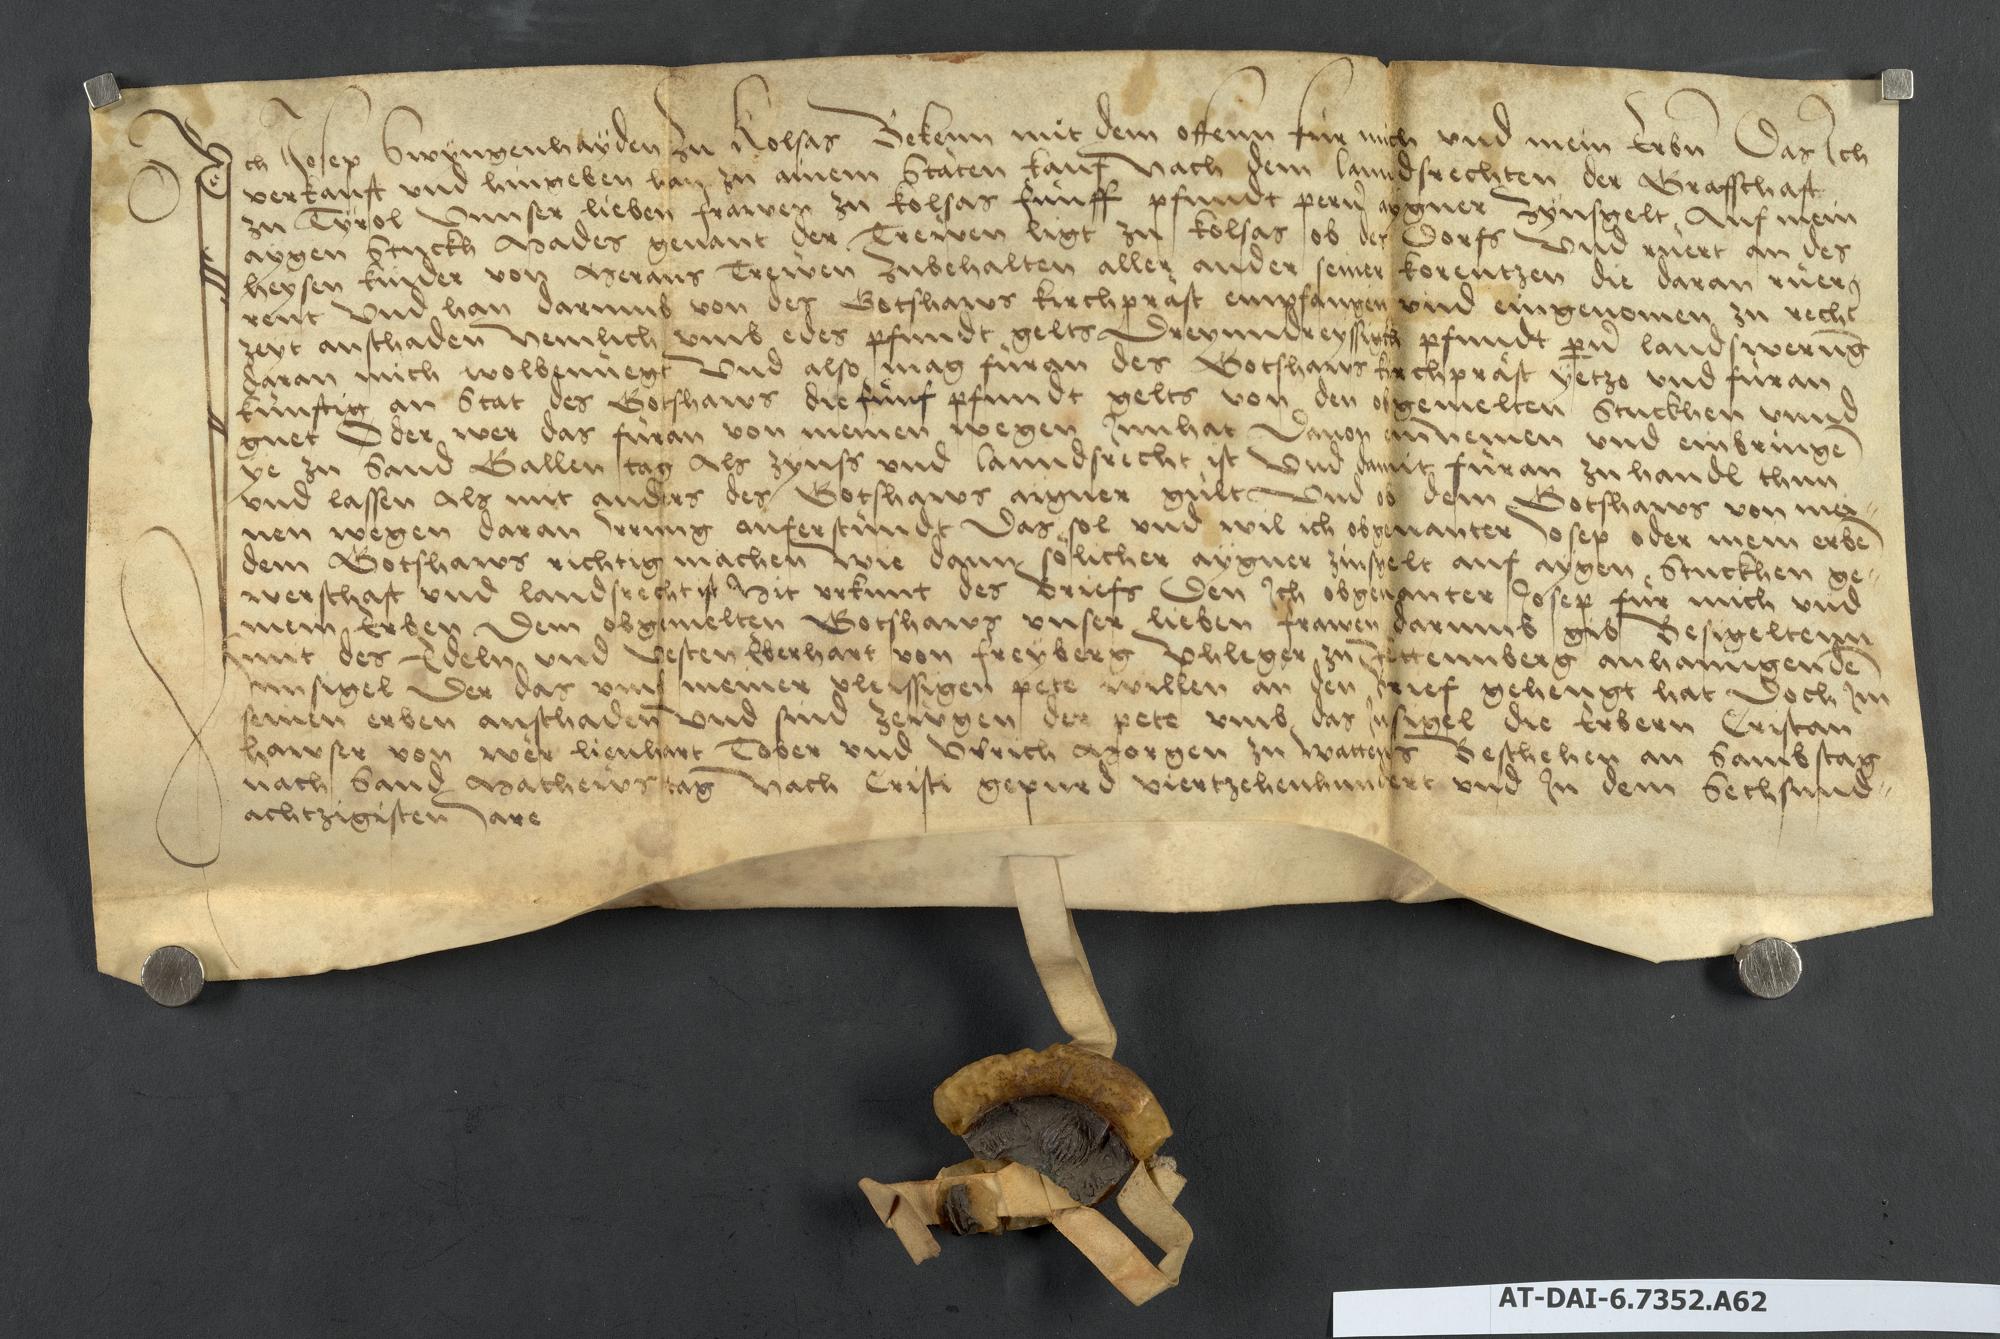 Ich Josep Swyngenhayden zu Kolsas Bekenn mit dem offenn für mich und mein Erbn Das Ich
verkauft und hingeben han zu ainem Stäten kauf Nach dem lanndsrechten der Grafschaft
zu Tyrol Vnnser lieben frawen zu kolsas fünff pfundt perner aygner Zynsgelt Auf mein
aygen Stuckh Mades genant der Trewen ligt zu kolsas ob des Dorfs Und rüert an des
heysen kinder von Merans Trewen zubehalten aller ander seiner korentzen die daran rüer
rent Und han darumb von des Gotshaws kirchpräst empfangen und eingenomen zu recht
zeyt anschaden Nemlich umb edes pfundt gelts Dreyunndreyssigch pfundt pern landswerung
daran mich wolbenüegt Und also mag füran des Gotshaws kirchpräst yetzo und füran
künftig an Stat des Gotshaws die fünf pfundt gelts von den obgemelten Stuckhen unnd
guet Oder wer das füran von meinen wegen Innhat Dauon einnemen und einbringen
ye zu Sand Gallen tag Als zynss und lanndsrecht ist Und damit füran zuhandl thun
und lassen Als mit anders des Gotshaws aigner gült Und ob dem Gotshaws von mei-
nen wegen daran Irrung auferstündt Das sol und wil ich obgenanter Josep oder mein erben
dem Gotshaws richtig machen Wie dann sölicher aygner zinsgelt auf aygen Stuckhen ge-
werschaft und landsrecht ist Mit urkunt des Briefs Den Ich obgenanter Josep für mich und
mein Erben Dem obgemelten Gotshaws unser lieben frawen darumb gib Besigeltenn
mit des Edeln und Vesten Eberhart von freyberg Phleger zu Rettennberg anhanngenden
Innsigel Der das umb meiner vleissigen pete willen an den Brief gehengt hat Doch Im
seinen erben anschaden Und sind zewgen der pete umb das Insigel die Erbern Cristan
hawser von wer lienhart Tober und Ulrich Morgen zu Wattens Beschehen an Sambstag
nach Sand Mathews tag Nach Cristi gepurd viertzehenhundert und In dem Sechsund-
achtzigisten Jare
AT-DAI-6.7352.A62